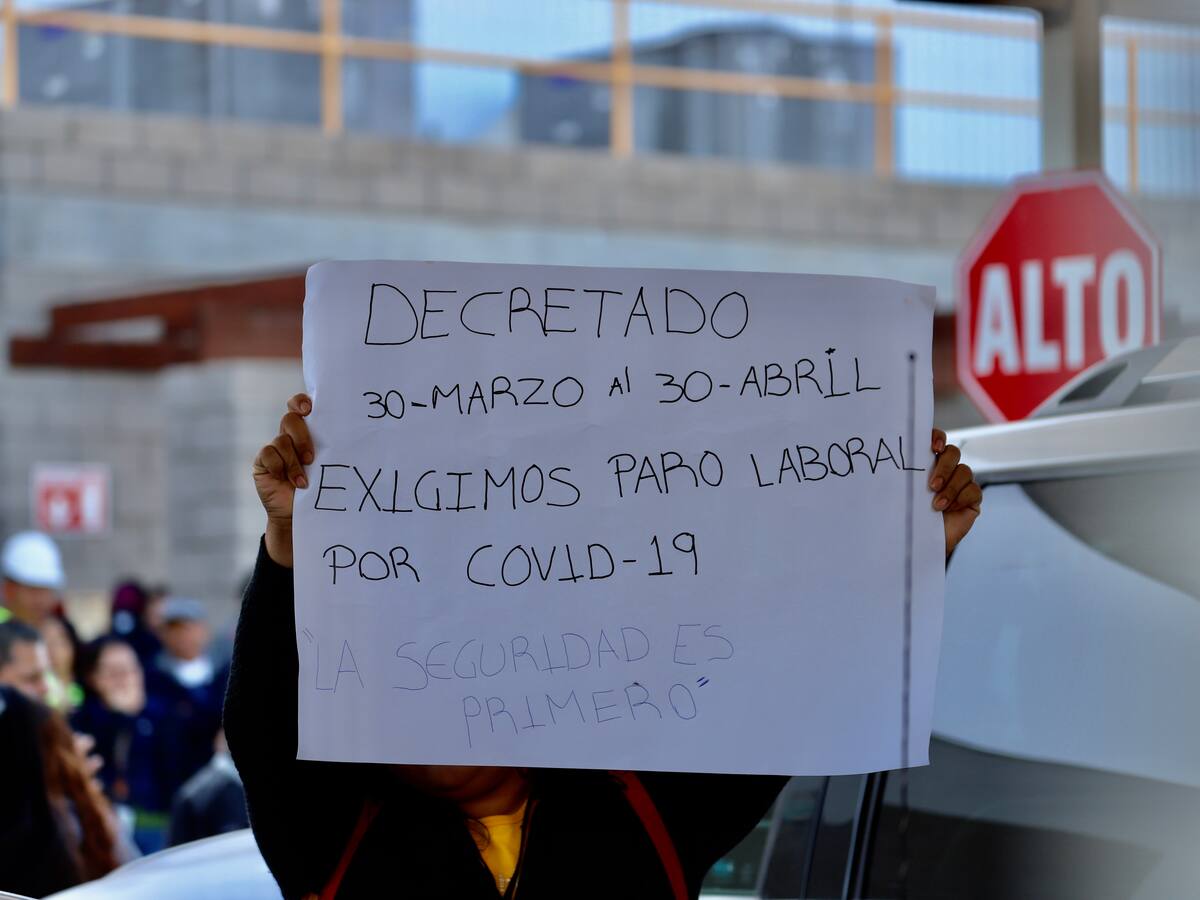 DECRETADO
30-MARZO Al 30-ABRIL
EXIGIMOS PARO LABORAL
POR COVID-19
"LA SEGURIDAD ES
PRIMERO"
ALTO